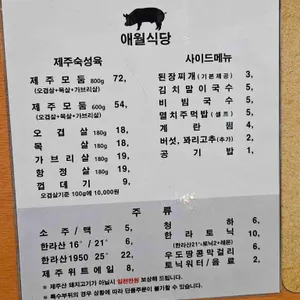 애월식당
제주숙성육
제주모둠 800g 72,
(오겹살+목살+가브리살)
제주모둠 600g 54,
(오겹살+목살)
오겹살 180g 18,
목살 180g 18,
가브리살 180g 19,
항정살 180g 19,
껍데기 9,
오겹살기준 100g에 10,000원
사이드메뉴
된장찌개 (기본제공) 3,
김치말이국수 5,
비빔국수 5,
멸치주먹밥 (셀프) 3,
계란찜 4,
버섯, 꽈리고추 (추가) 2,
공기밥 1,
주류
소주/맥주 5,
한라산 16°/21° 6,
한라산1950 25° 22,
제주위트에일 8,
청하 6,
한라토닉 10,
(한라산21°+토닉2+레몬)
우도땅콩막걸리 7,
토닉워터/음료 2,
* 제주산 돼지고기가 아닐시 일천만원 보상해 드립니다.
* 특수부위의 경우 상황에 따라 단품주문이 불가할 수 있습니다.